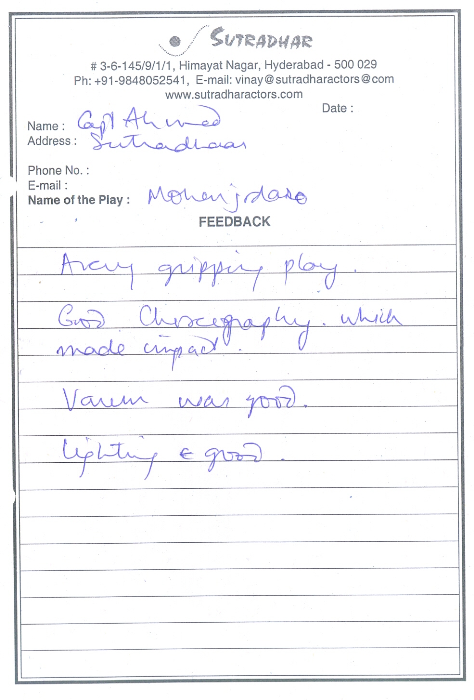 SUTRADHAR
# 3-6-145/9/1/1, Himayat Nagar, Hyderabad - 500 029
Ph: +91-9848052541, E-mail: vinay@sutradharactors@com
www.sutradharactors.com
Date :
Name : Capt Ahmed
Address : Sutradhaar
Phone No. :
E-mail :
Name of the Play : Mohenjodaro
FEEDBACK
A very gripping play.
Good Choreography. which
made impact.
was good.
lighting good.